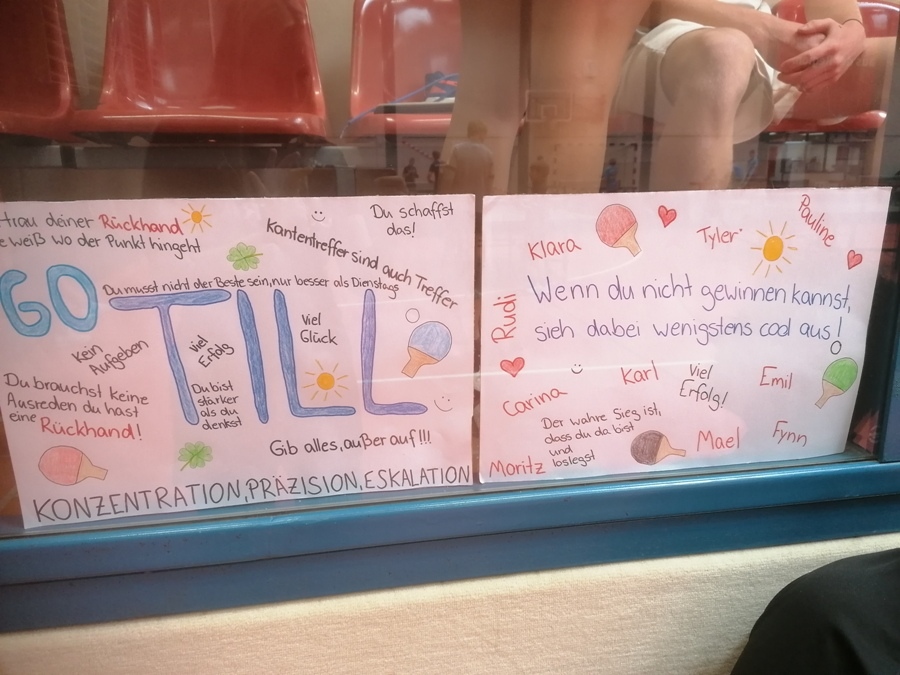 trau deiner Rückhand
weiß wo der Punkt hingeht
Kantentreffer sind auch Treffer
Du schaffst
das!
GO
Du musst nicht der Beste sein, nur besser als Dienstags
TILL
Kein
Aufgeben
viel
Erfolg
Viel
Glück
Du brauchst keine
Ausreden du hast
eine Rückhand!
Du bist
stärker
als du
denkst
Gib alles, außer auf!!!
KONZENTRATION, PRÄZISION, ESKALATION
Klara
Tyler
Pauline
Rudi
Wenn du nicht gewinnen kannst,
sieh dabei wenigstens cool aus!
Carina
Karl
Viel
Erfolg!
Emil
Der wahre Sieg ist,
dass du da bist
und
loslegst
Moritz
Mael
Fynn